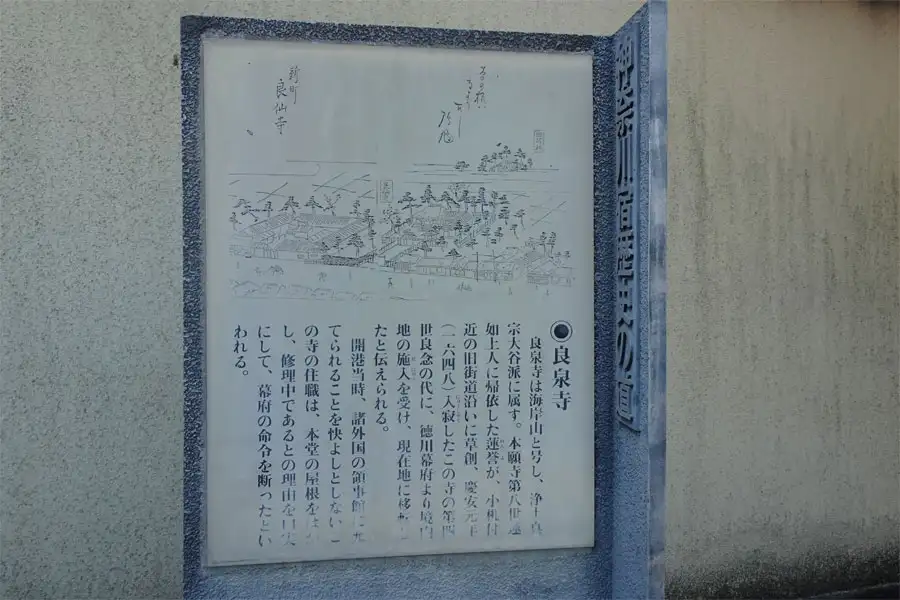 神奈川宿歴史の道
新町
良仙寺
良泉寺
良泉寺は海岸山と号し、浄土真
宗大谷派に属す。本願寺第八世蓮
如上人に帰依した蓮誉が、小机付
近の旧街道沿いに草創、慶安元年
(一六四八)入寂したこの寺の第四
世良念の代に、徳川幕府より境内
地の施入を受け、現在地に移転し
たと伝えられる。
開港当時、諸外国の領事館に充
てられることを快よしとしないこ
の寺の住職は、本堂の屋根をはが
し、修理中であるとの理由を口実
にして、幕府の命令を断ったとい
われる。